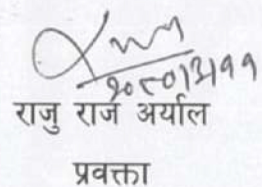 २०८०।३।११
राजु राज अर्याल
प्रवक्ता